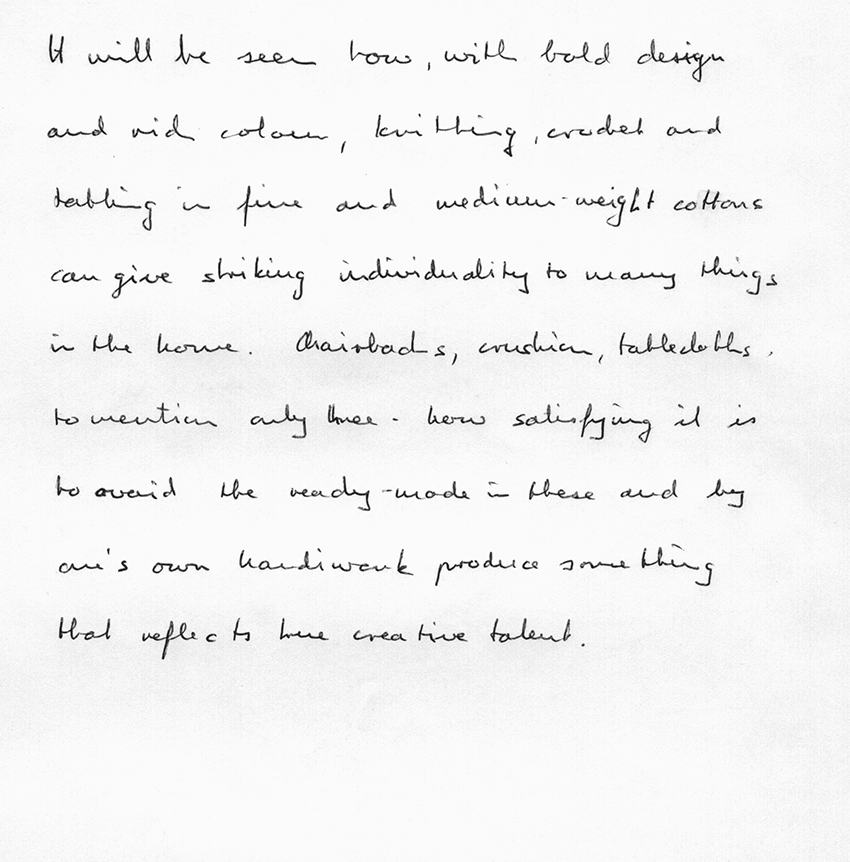 It will be seen how, with bold design
and rich colour, knitting, crochet and
tatting in fine and medium-weight cottons
can give striking individuality to many things
in the home. Chairbacks, cushion, tablecloths,
to mention only three - how satisfying it is
to avoid the ready-made in these and by
one's own handiwork produce something
that reflects true creative talent.